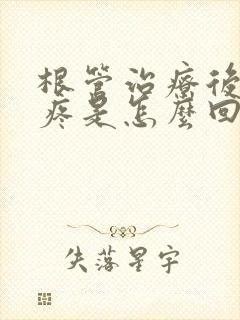 根管治療後
疼是怎麼回
失落星宇